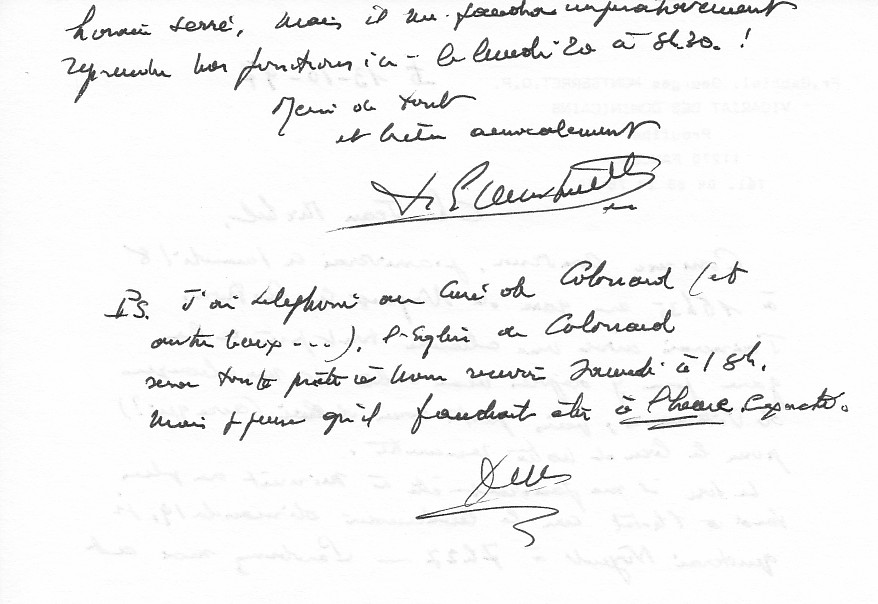 horaire serré, mais il me faudra impérativement
reprendre mes fonctions ici - le lundi 20 à 8h30. !
Merci de tout
et bien amicalement
PS. J'ai téléphoné au Curé de Colonard (et
autres lieux ---). l'Eglise de Colonard
sera toute prête à nous recevoir Samedi à 18h.
Mais je pense qu'il faudrait être à l'heure exacte.